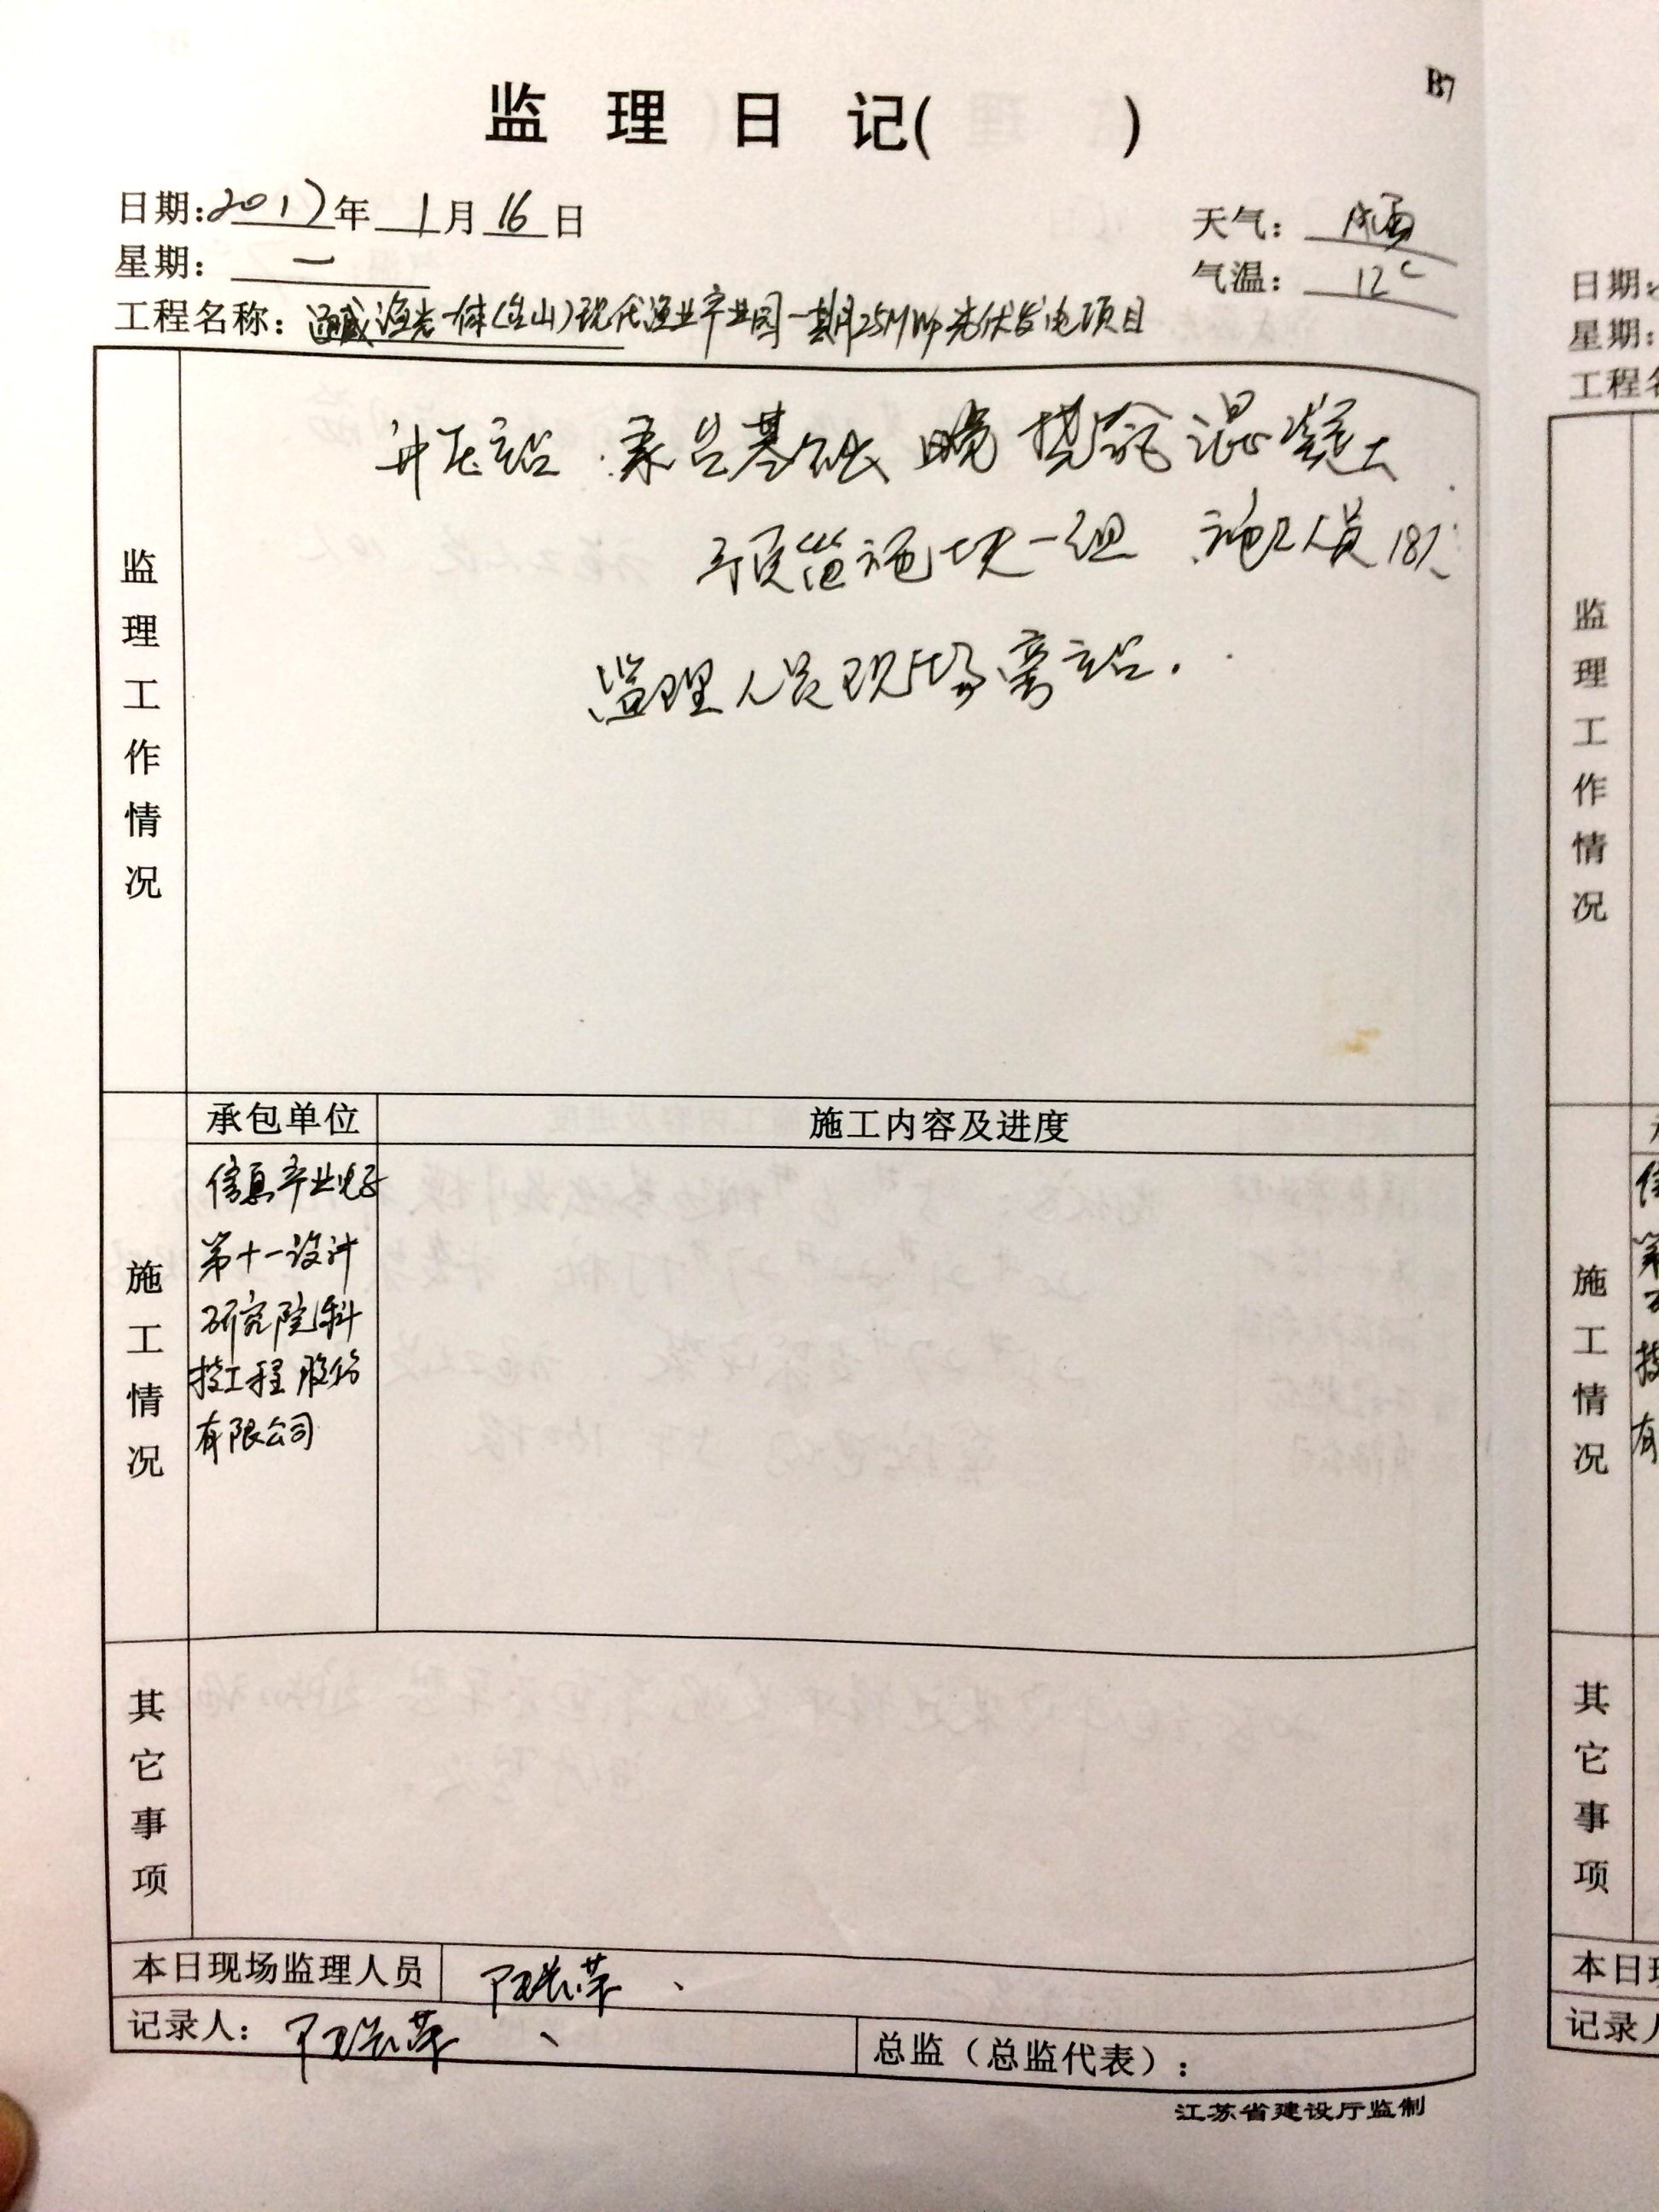 B7
监理日记( )
日期:2017年1月16日
天气:
星期:一
气温:12℃
工程名称:通威渔光一体(台山)现代渔业产业园一期25MWp光伏发电项目
监理工作情况
升压站 承台基础 浇筑混凝土
预留 块一组 施工人员18人
监理人员现场旁站.
承包单位
施工内容及进度
施工情况
信息产业电子
第十一设计
研究院科
技工程股份
有限公司
其它事项
本日现场监理人员
记录人:
总监(总监代表):
江苏省建设厅监制
日期:
星期:
工程名
监理工作情况
施工情况
其它事项
本日现
记录人